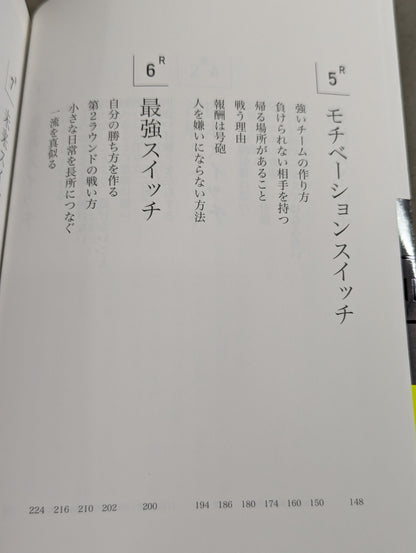 5R
モチベーションスイッチ 148
強いチームの作り方 150
負けられない相手を持つ 160
帰る場所があること 174
戦う理由 180
報酬は号砲 186
人を嫌いにならない方法 194
6R
最強スイッチ 200
自分の勝ち方を作る 202
第2ラウンドの戦い方 210
小さな日常を長所につなぐ 216
一流を真似る 224